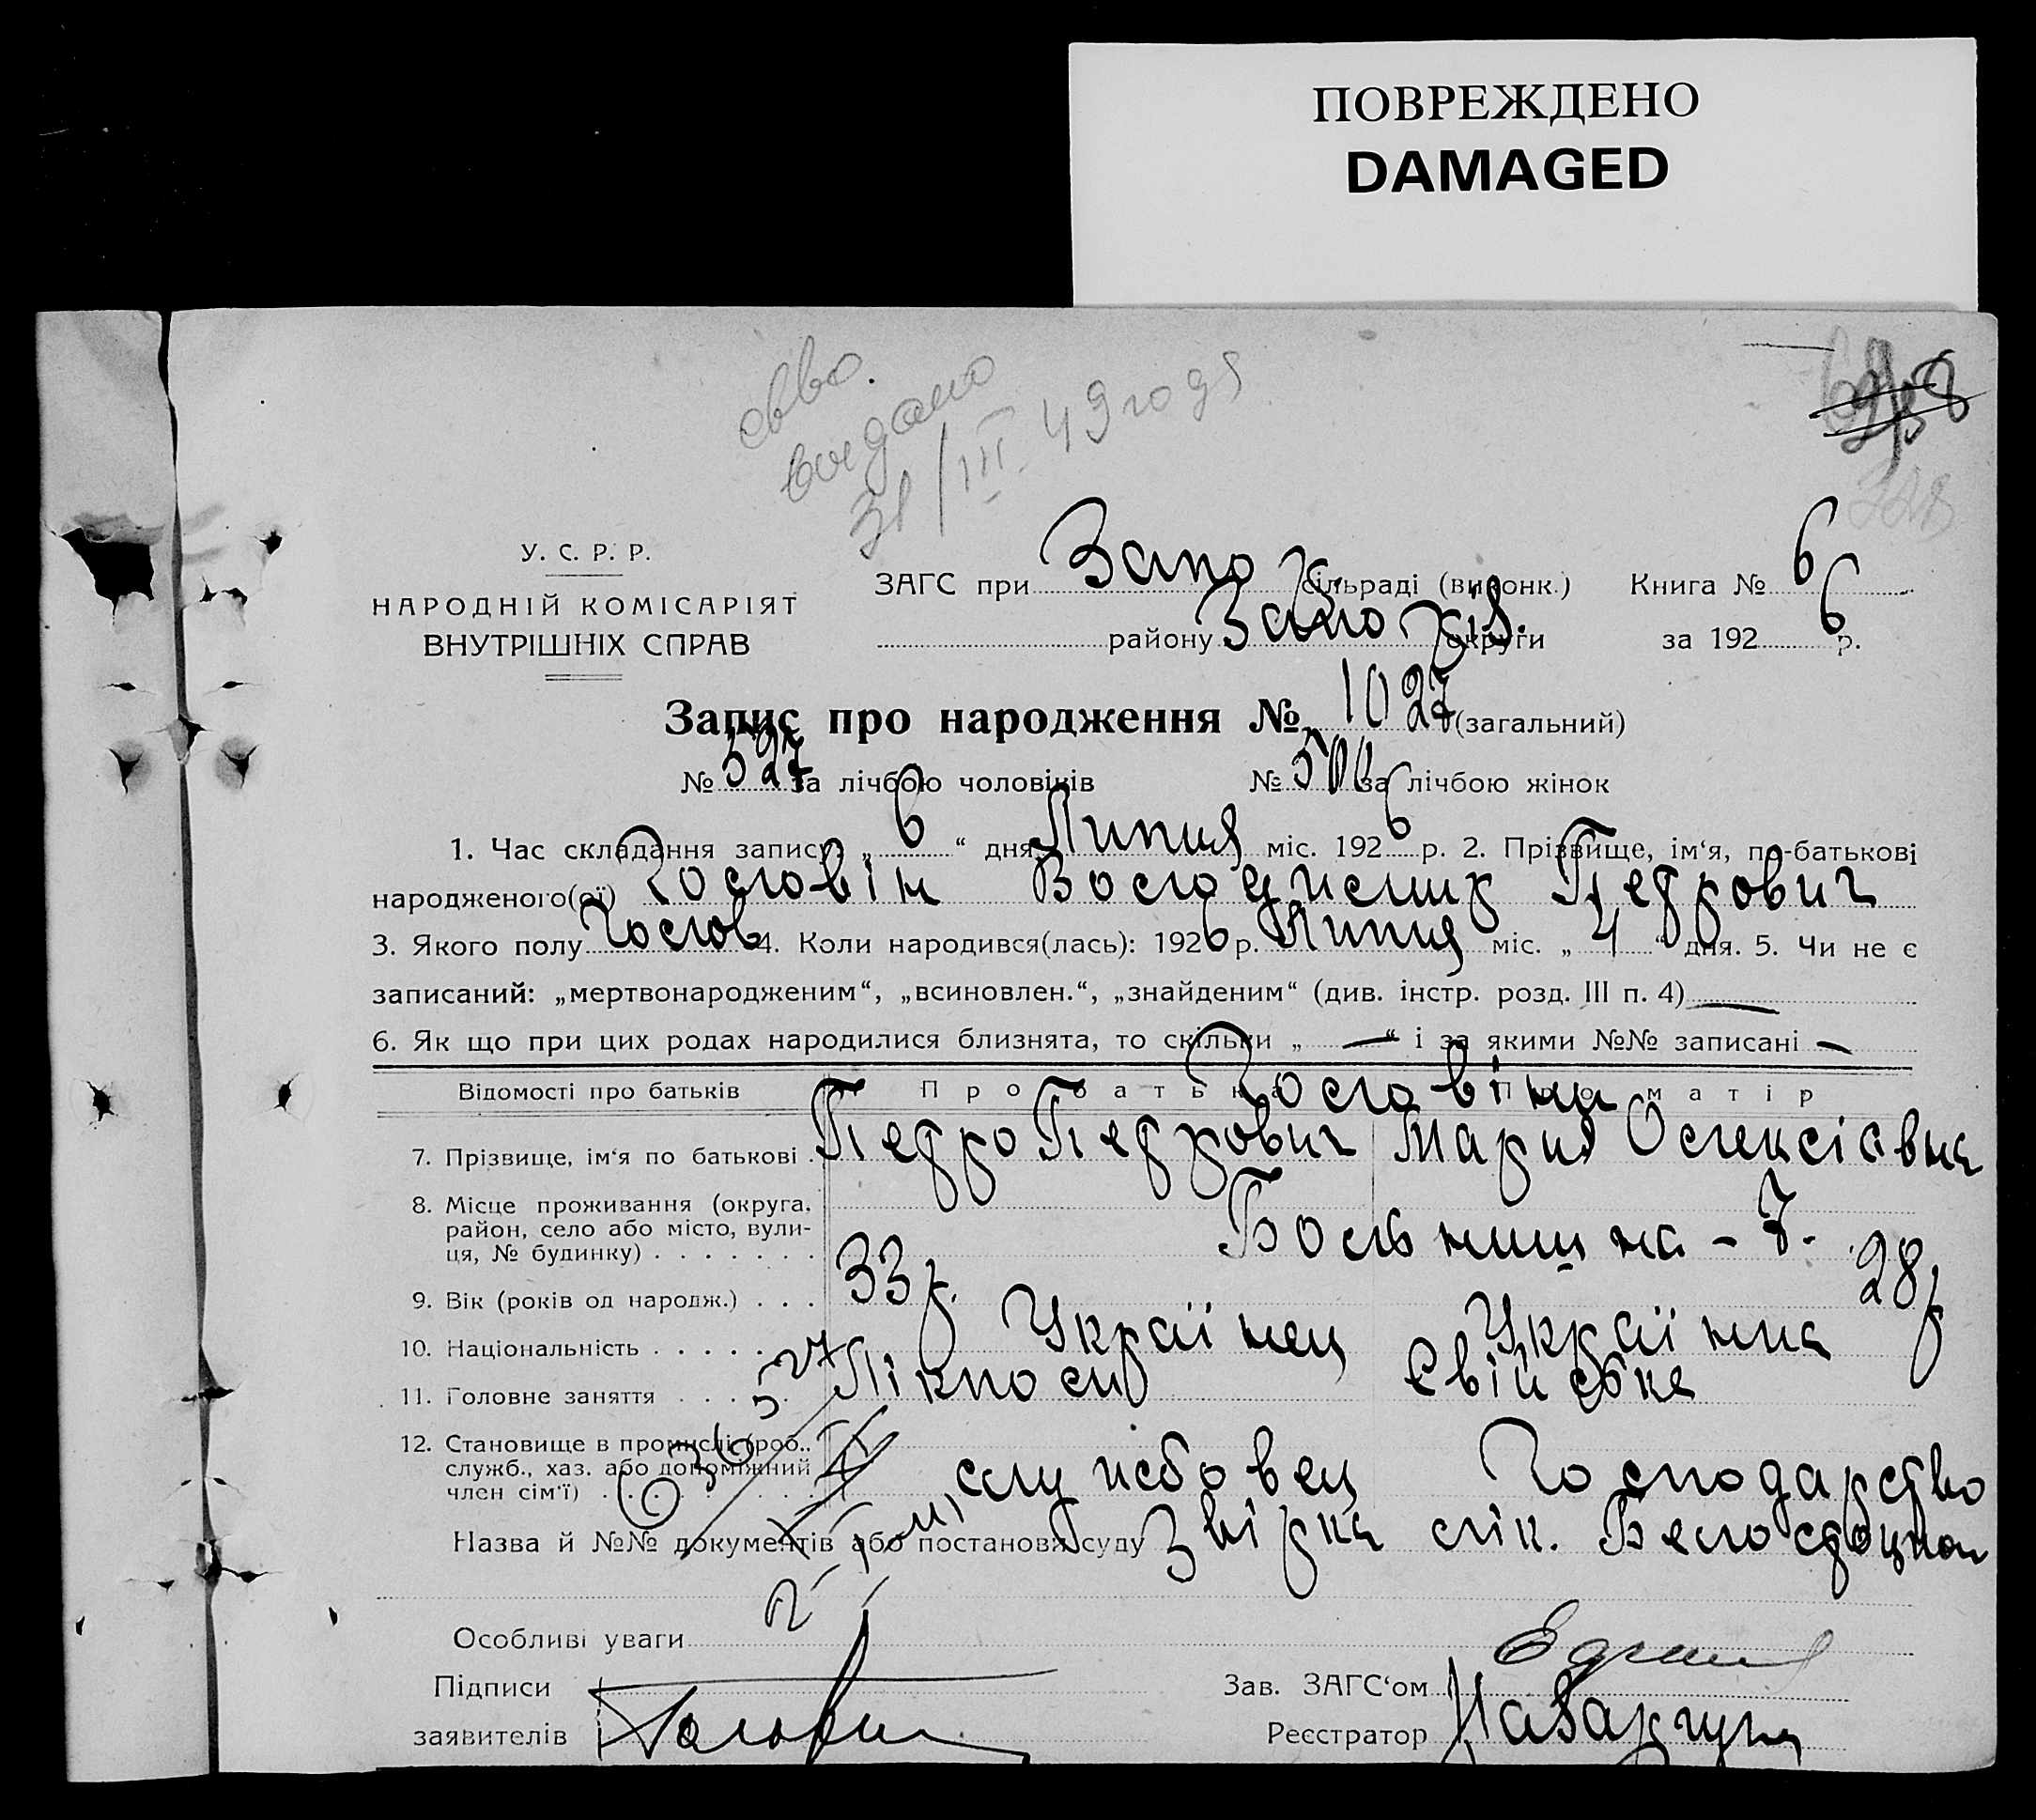 ПОВРЕЖДЕНО
DAMAGED
свво.
выдано
31/III 49 года
У. С. Р. Р.
НАРОДНІЙ КОМІСАРІЯТ
ВНУТРІШНІХ СПРАВ
ЗАГС при Запо сільраді (виконк.) Книга № 6
району Запоріз. округи за 1926 р.
Запис про народження № 1027 (загальний)
№ 527 за лічбою чоловіків № 500 за лічбою жінок
1. Час складання запису „ 6 “ дня Липня міс. 1926 р. 2. Прізвище, ім‘я, по-батькові
народженого(ої) Головін Володимир Петрович
3. Якого полу Чолов 4. Коли народився(лась): 1926 р. Липня міс. „ 4 “ дня. 5. Чи не є
записаний: „мертвонародженим“, „всиновлен.“, „знайденим“ (див. інстр. розд. III п. 4) —
6. Як що при цих родах народилися близнята, то скільки „ — “ і за якими №№ записані —
Відомості про батьків Про батька Про матір
Головіни
7. Прізвище, ім‘я по батькові . Петро Петрович Мария Олексіївна
8. Місце проживання (округа, район, село або місто, вулиця, № будинку) . . . . . . . Больнична – 7.
9. Вік (років од народж.) . . . 33 р. 28 р
10. Національність . . . . . Українец Українка
11. Головне заняття . . . . . Свійська
12. Становище в промислі (роб., служб., хаз. або допоміжний член сім‘ї) . . . . . . . службовец Господарство
Назва й №№ документів або постанови суду Звірка лік.
Особливі уваги
Підписи
заявителів
Зав. ЗАГС‘ом
Реєстратор